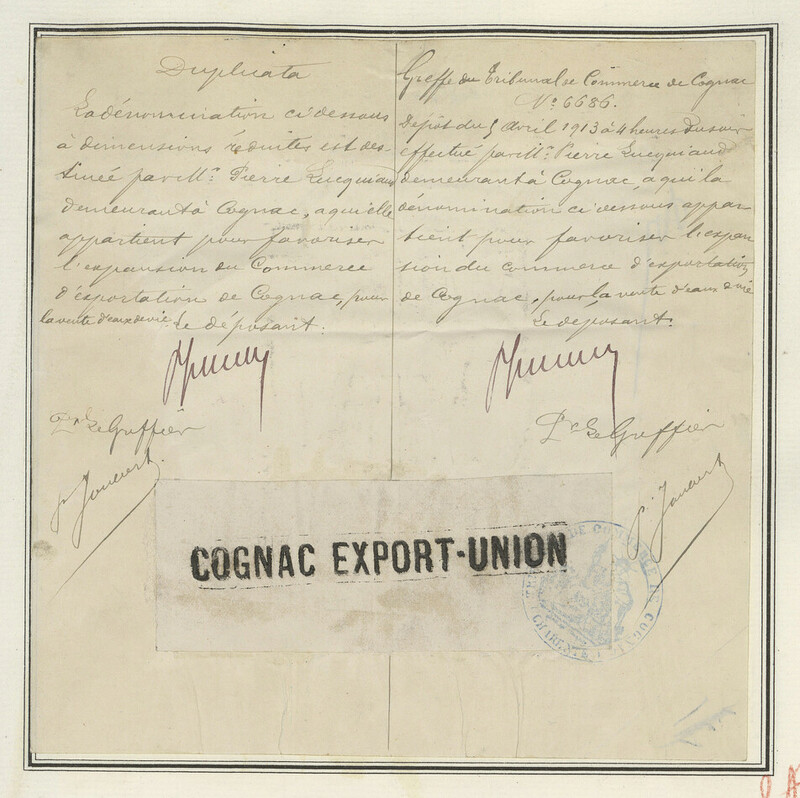 Duplicata
La dénomination ci dessous
à dimensions réduites est des
tinée par Mr. Pierre Lucquiaud
demeurant à Cognac, a qui elle
appartient pour favoriser
l'expansion du Commerce
d'exportation de Cognac, pour
la vente d'eaux de vie
Le déposant.
Pr Le Greffier
Greffe du Tribunal de Commerce de Cognac
No. 6686.
Dépôt du 5 Avril 1913 à 4 heures du soir
effectué par Mr. Pierre Lucquiaud
demeurant à Cognac, a qui la
dénomination ci dessous appar-
tient pour favoriser l'expan
sion du commerce d'exportation
de Cognac, pour la vente d'eaux de vie
Le déposant.
Pr Le Greffier
COGNAC EXPORT-UNION